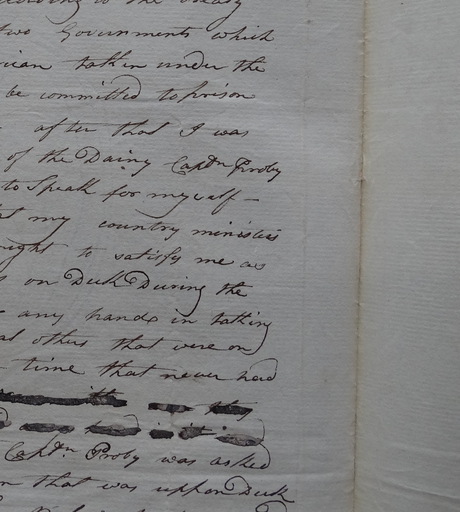 according to the treaty
two Governments which
rican taken under the
be committed to prison
after that I was
of the Dainy Captn Proby
to Speak for myself –
my country ministers
ought to satisfy me as
on Duck During the
any hands in taking
others that were on
time that never had
Captn Proby was asked
that was uppon Duck